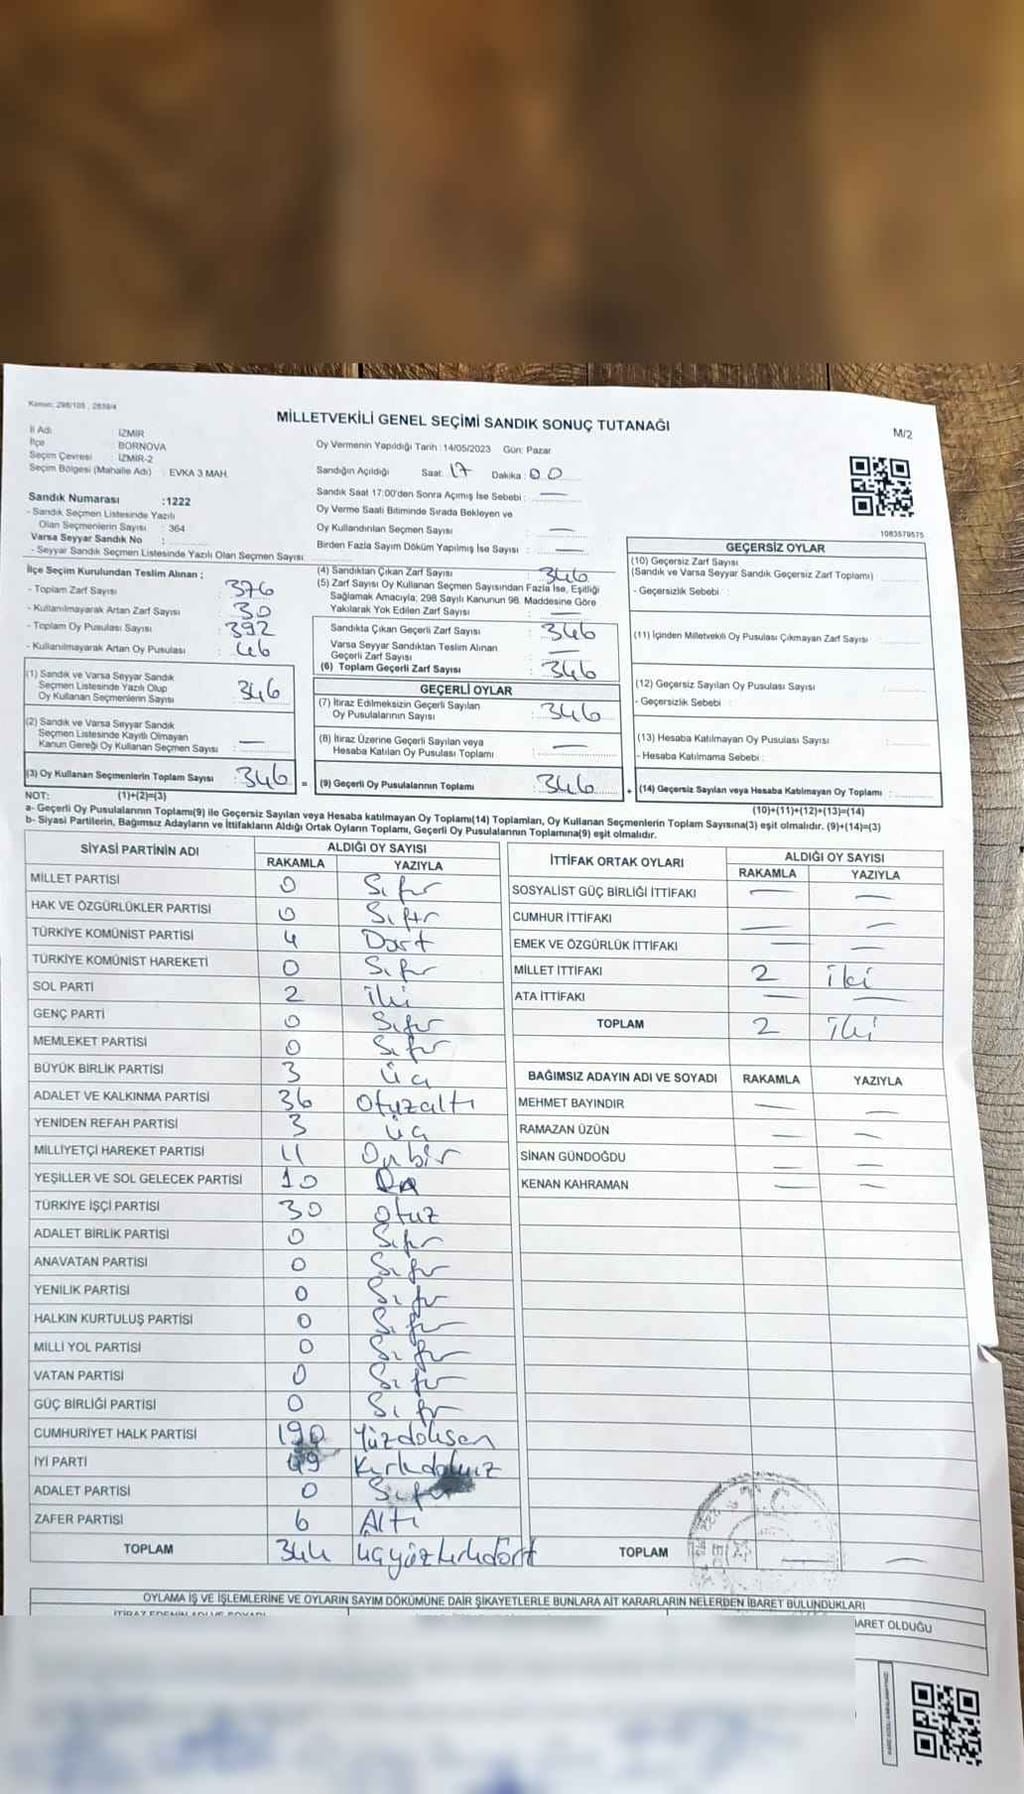 Kanun: 298/105 , 2839/4
MİLLETVEKİLİ GENEL SEÇİMİ SANDIK SONUÇ TUTANAĞI
M/2
İl Adı : İZMİR
İlçe : BORNOVA
Seçim Çevresi : İZMİR-2
Seçim Bölgesi (Mahalle Adı) : EVKA 3 MAH.
Oy Vermenin Yapıldığı Tarih :14/05/2023 Gün: Pazar
Sandığın Açıldığı Saat: 17 Dakika: 00
Sandık Saat 17:00'den Sonra Açımış İse Sebebi : —
Oy Verme Saati Bitiminde Sırada Bekleyen ve
Oy Kullandırılan Seçmen Sayısı : —
Birden Fazla Sayım Döküm Yapılmış İse Sayısı : —
1083579575
Sandık Numarası :1222
- Sandık Seçmen Listesinde Yazılı
Olan Seçmenlerin Sayısı : 364
Varsa Seyyar Sandık No :
- Seyyar Sandık Seçmen Listesinde Yazılı Olan Seçmen Sayısı
İlçe Seçim Kurulundan Teslim Alınan ;
- Toplam Zarf Sayısı : 376
- Kullanılmayarak Artan Zarf Sayısı : 30
- Toplam Oy Pusulası Sayısı : 392
- Kullanılmayarak Artan Oy Pusulası : 46
(1) Sandık ve Varsa Seyyar Sandık
Seçmen Listesinde Yazılı Olup
Oy Kullanan Seçmenlerin Sayısı : 346
(2) Sandık ve Varsa Seyyar Sandık
Seçmen Listesinde Kayıtlı Olmayan
Kanun Gereği Oy Kullanan Seçmen Sayısı : —
(3) Oy Kullanan Seçmenlerin Toplam Sayısı : 346
(4) Sandıktan Çıkan Zarf Sayısı 346
(5) Zarf Sayısı Oy Kullanan Seçmen Sayısından Fazla İse, Eşitliği
Sağlamak Amacıyla; 298 Sayılı Kanunun 98. Maddesine Göre
Yakılarak Yok Edilen Zarf Sayısı : —
Sandıkta Çıkan Geçerli Zarf Sayısı : 346
Varsa Seyyar Sandıktan Teslim Alınan
Geçerli Zarf Sayısı : —
(6) Toplam Geçerli Zarf Sayısı : 346
GEÇERLİ OYLAR
(7) İtiraz Edilmeksizin Geçerli Sayılan
Oy Pusulalarının Sayısı : 346
(8) İtiraz Üzerine Geçerli Sayılan veya
Hesaba Katılan Oy Pusulası Toplamı : —
= (9) Geçerli Oy Pusulalarının Toplamı : 346
GEÇERSİZ OYLAR
(10) Geçersiz Zarf Sayısı
(Sandık ve Varsa Seyyar Sandık Geçersiz Zarf Toplamı) :
- Geçersizlik Sebebi :
(11) İçinden Milletvekili Oy Pusulası Çıkmayan Zarf Sayısı :
(12) Geçersiz Sayılan Oy Pusulası Sayısı :
- Geçersizlik Sebebi :
(13) Hesaba Katılmayan Oy Pusulası Sayısı :
- Hesaba Katılmama Sebebi :
+ (14) Geçersiz Sayılan veya Hesaba Katılmayan Oy Toplamı :
NOT: (1)+(2)=(3) (10)+(11)+(12)+(13)=(14)
a- Geçerli Oy Pusulalarının Toplamı(9) ile Geçersiz Sayılan veya Hesaba katılmayan Oy Toplamı(14) Toplamları, Oy Kullanan Seçmenlerin Toplam Sayısına(3) eşit olmalıdır. (9)+(14)=(3)
b- Siyasi Partilerin, Bağımsız Adayların ve İttifakların Aldığı Ortak Oyların Toplamı, Geçerli Oy Pusulalarının Toplamına(9) eşit olmalıdır.
SİYASİ PARTİNİN ADI ALDIĞI OY SAYISI
RAKAMLA YAZIYLA
MİLLET PARTİSİ 0 Sıfır
HAK VE ÖZGÜRLÜKLER PARTİSİ 0 Sıfır
TÜRKİYE KOMÜNİST PARTİSİ 4 Dört
TÜRKİYE KOMÜNİST HAREKETİ 0 Sıfır
SOL PARTİ 2 iki
GENÇ PARTİ 0 Sıfır
MEMLEKET PARTİSİ 0 Sıfır
BÜYÜK BİRLİK PARTİSİ 3 Üç
ADALET VE KALKINMA PARTİSİ 36 Otuzaltı
YENİDEN REFAH PARTİSİ 3 Üç
MİLLİYETÇİ HAREKET PARTİSİ 11 Onbir
YEŞİLLER VE SOL GELECEK PARTİSİ 10 On
TÜRKİYE İŞÇİ PARTİSİ 30 otuz
ADALET BİRLİK PARTİSİ 0 Sıfır
ANAVATAN PARTİSİ 0 Sıfır
YENİLİK PARTİSİ 0 Sıfır
HALKIN KURTULUŞ PARTİSİ 0 Sıfır
MİLLİ YOL PARTİSİ 0 Sıfır
VATAN PARTİSİ 0 Sıfır
GÜÇ BİRLİĞİ PARTİSİ 0 Sıfır
CUMHURİYET HALK PARTİSİ 190 Yüzdoksan
İYİ PARTİ 49 Kırkdokuz
ADALET PARTİSİ 0 Sıfır
ZAFER PARTİSİ 6 Altı
TOPLAM 344 üçyüzkırkdört
İTTİFAK ORTAK OYLARI ALDIĞI OY SAYISI
RAKAMLA YAZIYLA
SOSYALİST GÜÇ BİRLİĞİ İTTİFAKI — —
CUMHUR İTTİFAKI — —
EMEK VE ÖZGÜRLÜK İTTİFAKI — —
MİLLET İTTİFAKI 2 iki
ATA İTTİFAKI — —
TOPLAM 2 iki
BAĞIMSIZ ADAYIN ADI VE SOYADI RAKAMLA YAZIYLA
MEHMET BAYINDIR — —
RAMAZAN ÜZÜN — —
SİNAN GÜNDOĞDU — —
KENAN KAHRAMAN — —
TOPLAM — —
OYLAMA İŞ VE İŞLEMLERİNE VE OYLARIN SAYIM DÖKÜMÜNE DAİR ŞİKAYETLERLE BUNLARA AİT KARARLARIN NELERDEN İBARET BULUNDUKLARI
İBARET OLDUĞU